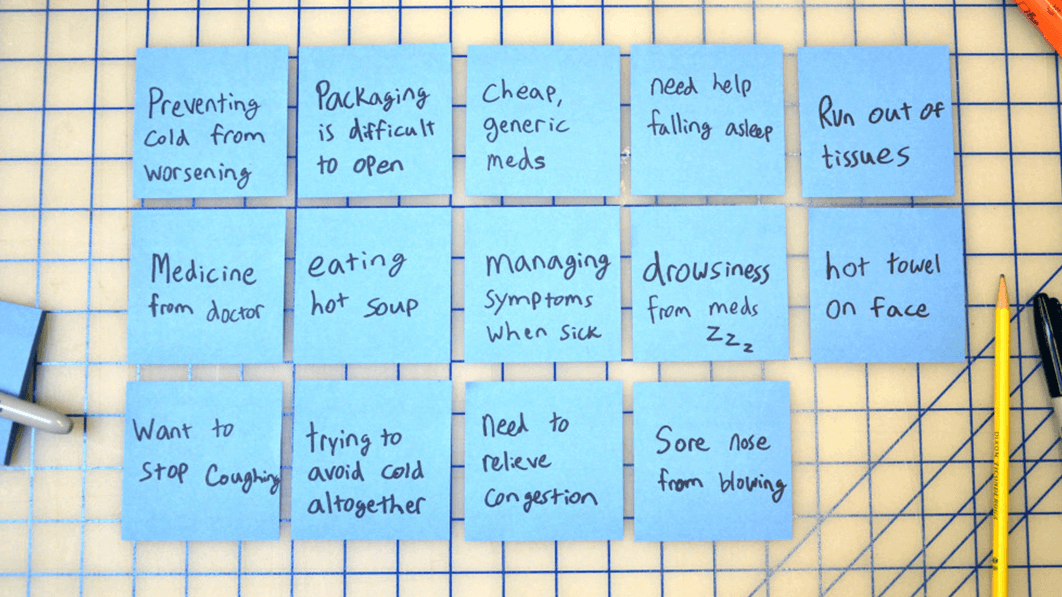 Preventing
cold from
worsening
Packaging
is difficult
to open
Cheap,
generic
meds
need help
falling asleep
Run out of
tissues
Medicine
from doctor
eating
hot soup
managing
symptoms
when sick
drowsiness
from meds
Zzz
hot towel
on face
Want to
stop coughing
trying to
avoid cold
altogether
need to
relieve
congestion
Sore nose
from blowing